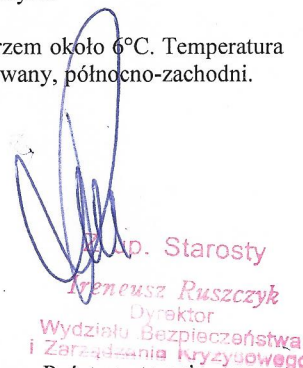 rzem około 6°C. Temperatura
owany, północno-zachodni.
Z up. Starosty
Ireneusz Ruszczyk
Dyrektor
Wydziału Bezpieczeństwa
i Zarządzania Kryzysowego